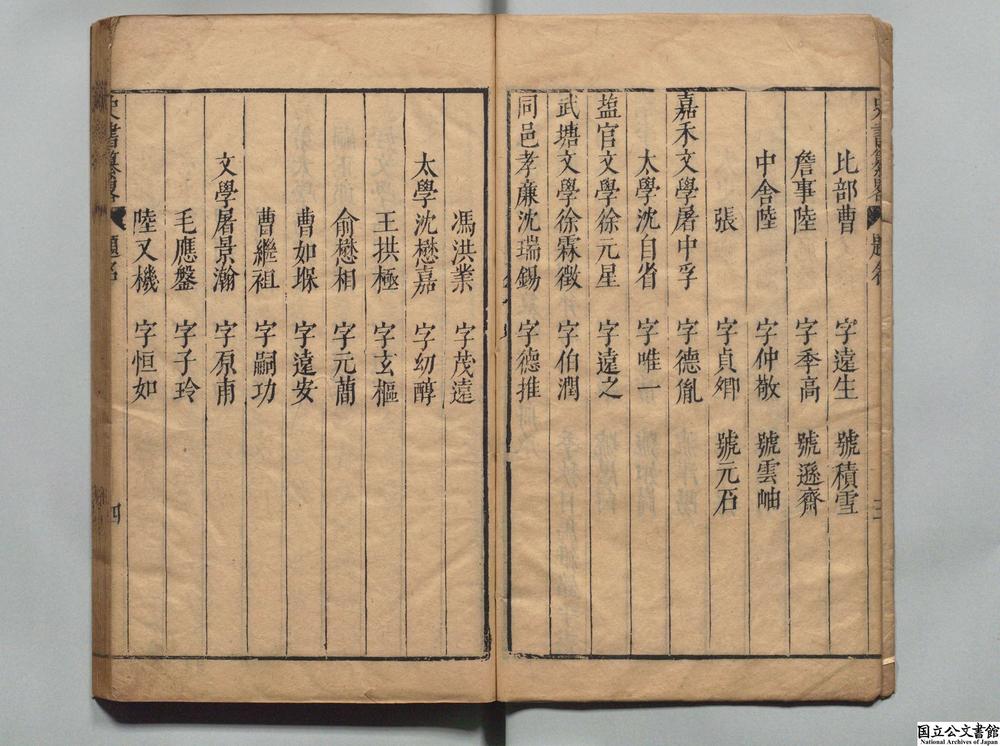 史書纂畧 題名
比部曹 字遠生 號積雪
詹事陸 字季高 號遜齊
中舎陸 字仲敬 號雲岫
張 字貞卿 號元石
嘉禾文學屠中孚 字德胤
太學沈自省 字唯一
塩官文學徐元星 字遠之
武塘文學徐霖徵 字伯潤
同邑孝廉沈瑞錫 字德推
馮洪業 字茂遠
太學沈懋嘉 字幼醇
王拱極 字玄樞
俞懋相 字元蕳
曹如堢 字遠安
曹繼祖 字嗣功
文學屠景瀚 字原甫
毛應盤 字子玲
陸又機 字恒如
史書纂畧 題名 四
国立公文書館
National Archives of Japan